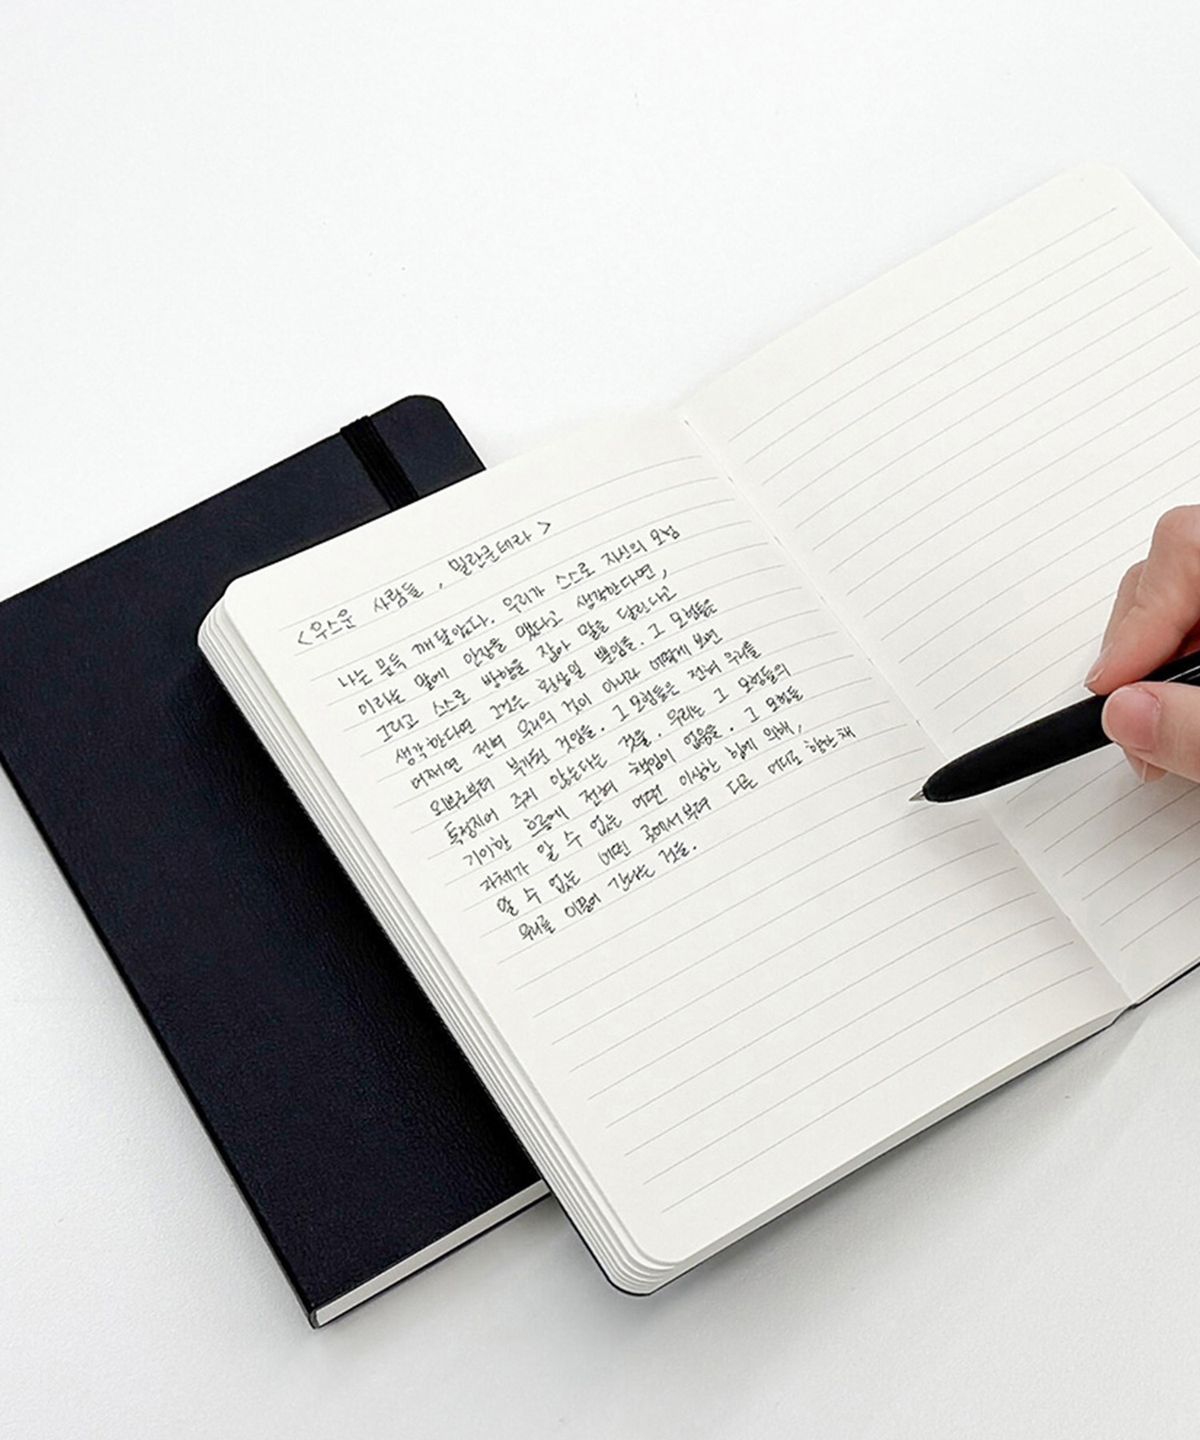 <우스운 사람들, 밀란쿤데라>
나는 문득 깨달았다. 우리가 스스로 자신의 모험
이라는 말에 안장을 맸다고 생각한다면,
그리고 스스로 방향을 잡아 말을 달린다고
생각한다면 그것은 환상일 뿐임을. 그 모험들은
어쩌면 전혀 우리의 것이 아니라 어떻게 보면
외부로부터 부가된 것임을. 그 모험들은 전혀 우리를
특징지어 주지 않는다는 것을. 우리는 그 모험들의
기이한 흐름에 전혀 책임이 없음을. 그 모험들
자체가 알 수 없는 어떤 이상한 힘에 의해,
알 수 없는 어떤 곳에서부터 다른 어디로 향한 채
우리를 이끌어 간다는 것을.